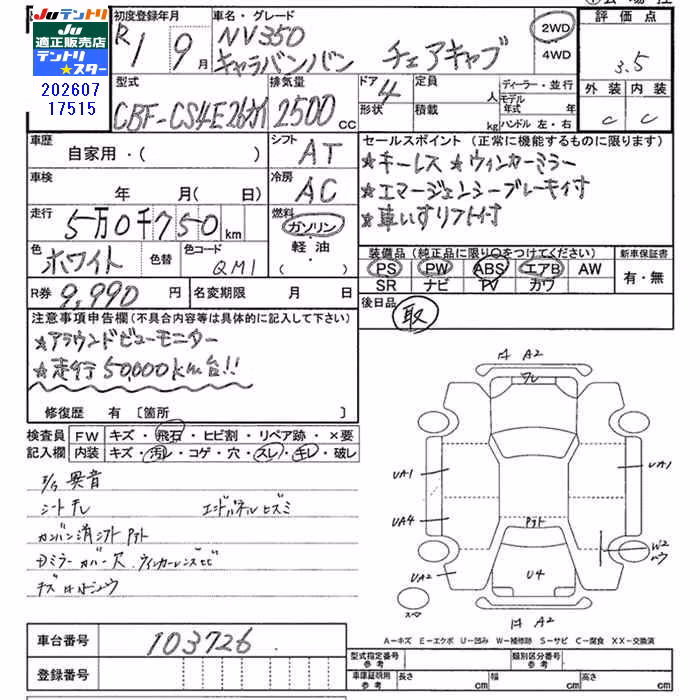 Juテントリ Juテントリ
JU
適正販売店
テントリ
★スター
202607
17515
初度登録年月
R1 9月
車名・グレード
NV350
キャラバンバン チェアキャブ
2WD
4WD
評価点
3.5
外装 内装
C C
型式
CBF-CS4E26
排気量
2500 cc
ドア
4
形状
定員
人
積載
kg
ディーラー・並行
モデル
年式 年
ハンドル 左・右
車歴
自家用・( )
シフト
AT
車検
年 月( 日)
冷房
AC
走行
5万0千750 km
燃料
ガソリン
軽・油
・( )
色
ホワイト
色替
色コード
QM1
R券 9,990 円
名変期限 月 日
セールスポイント (正常に機能するものに限ります)
★キーレス ★ウィンカーミラー
★エマージェンシーブレーキ付
★車いすリフト付
装備品(純正品に限り○をつけてください)
PS PW ABS エアB AW
SR ナビ TV カワ
新車保証書
有・無
後日品
取
注意事項申告欄(不具合内容等は具体的に記入して下さい)
★アラウンドビューモニター
★走行50,000km台!!
修復歴 有 [箇所 ]
検査員
記入欄
FW キズ・飛石・ヒビ割・リペア跡・×要
内装 キズ・汚レ・コゲ・穴・スレ・キレ・破レ
異音
エンドパネルヒズミ
A2
UA1
UA1
UA4
UA2
W2
U4
A2
A-キズ E-エクボ U-凹み W-補修跡 S-サビ C-腐食 XX-交換済
車台番号 103726
登録番号
型式指定番号
参考
類別区分番号
参考
車庫証明用
参考
長さ cm
幅 cm
高さ cm